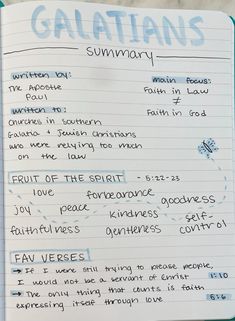 GALATIANS
summary
written by:
The Apostle
Paul
main focus:
Faith in Law
≠
Faith in God
written to:
churches in southern
Galatia + Jewish christians
who were relying too much
on the law
FRUIT OF THE SPIRIT - 5:22-23
love forbearance goodness
joy peace kindness self-control
faithfulness gentleness
FAV VERSES
→ If I were still trying to please people,
I would not be a servant of Christ 1:10
→ The only thing that counts is faith
expressing itself through love 5:6